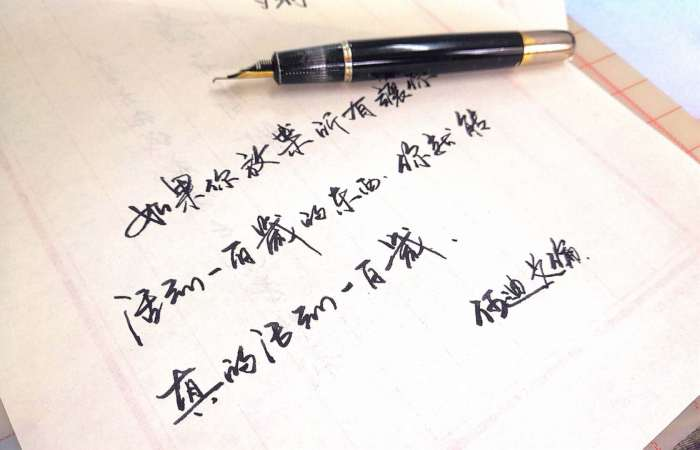 如果你放棄所有讓你
活到一百歲的东西.你就能
真的活到一百歲.
伍迪艾倫.